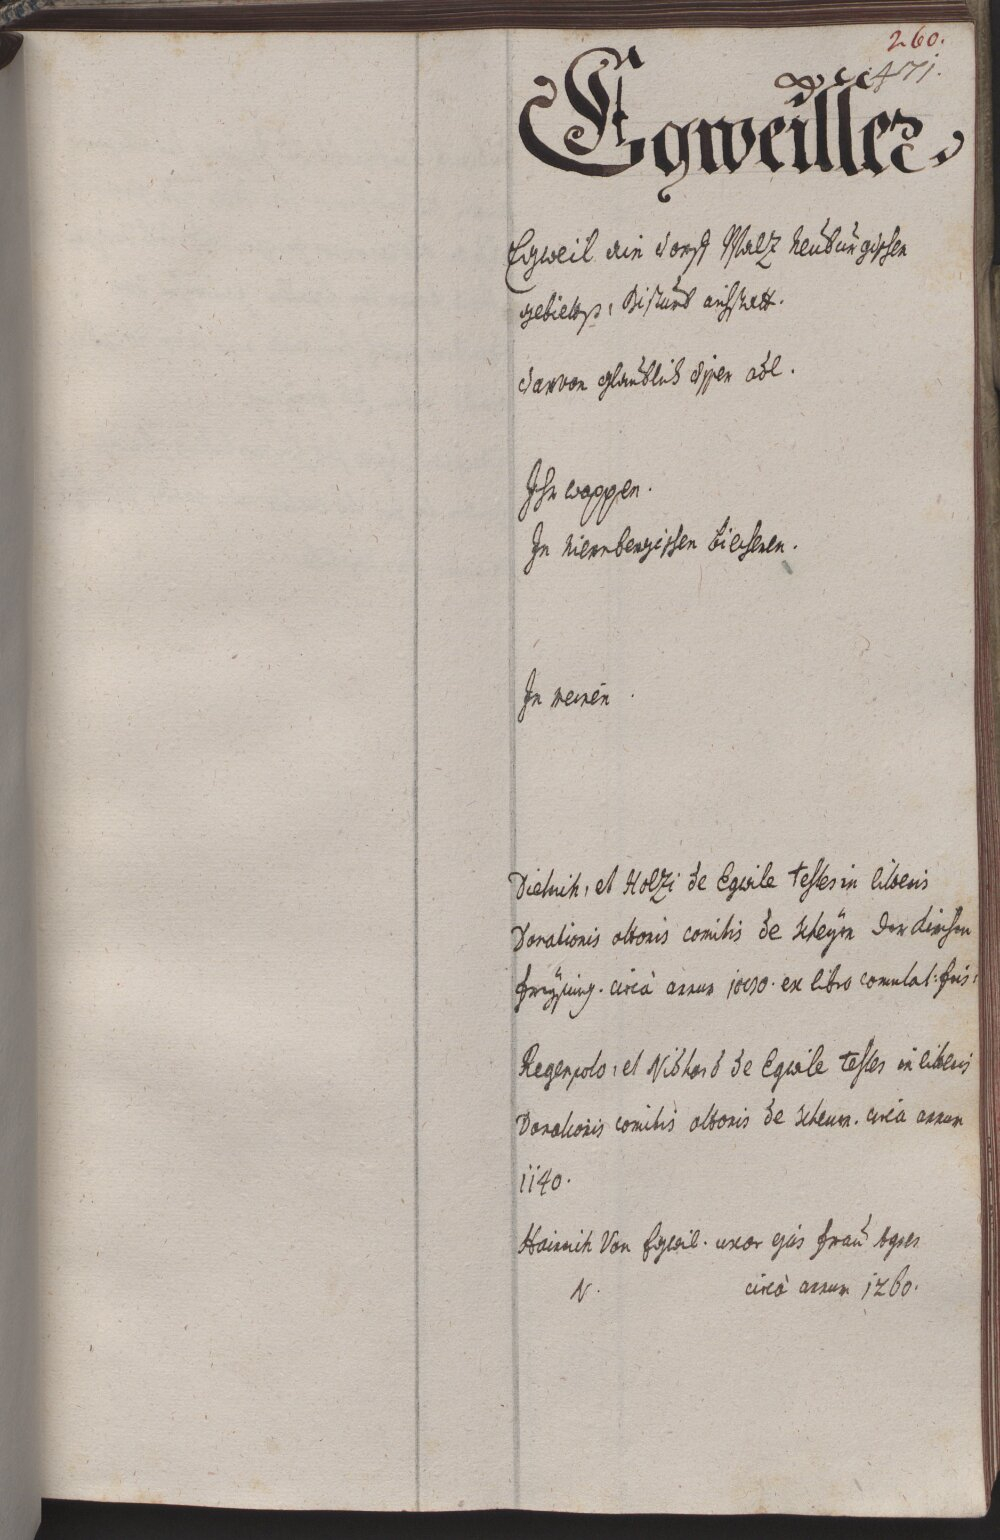 260.
471.
Egweiller
Egweil ain dorff Pfalz Neüburgischen
gebietts, Bistumb aichstett.
darvon glaublich diser adl.
Ihr wappen.
In Niernbergischen biechern.
In meinen.
Dietrich, et Holzi de Egwile testes in literis
Donationis ottonis comitis de Scheyrn der kirchen
freysing. circa annum ex libro comutat: fris:
Regenpoto, et Nibhard de Egwile testes in literis
Donationis comitis ottonis de Scheurn. circa annum
1140.
Hainrich Von Egwil. uxor ejus frau Agnes
N. circa annum 1260.